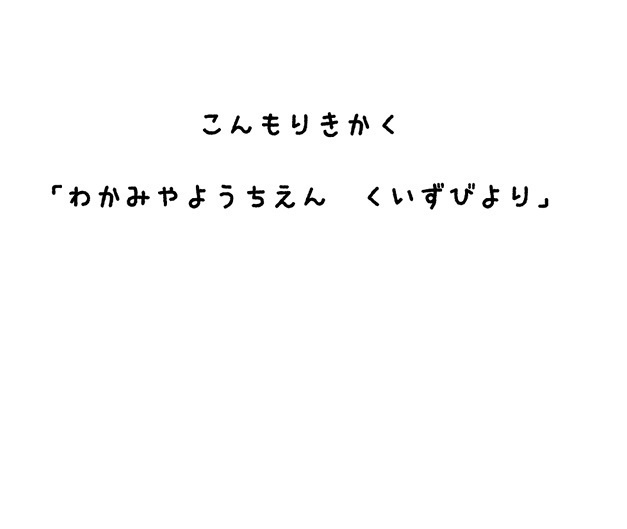 こんもりきかく
「わかみやようちえん　くいずびより」